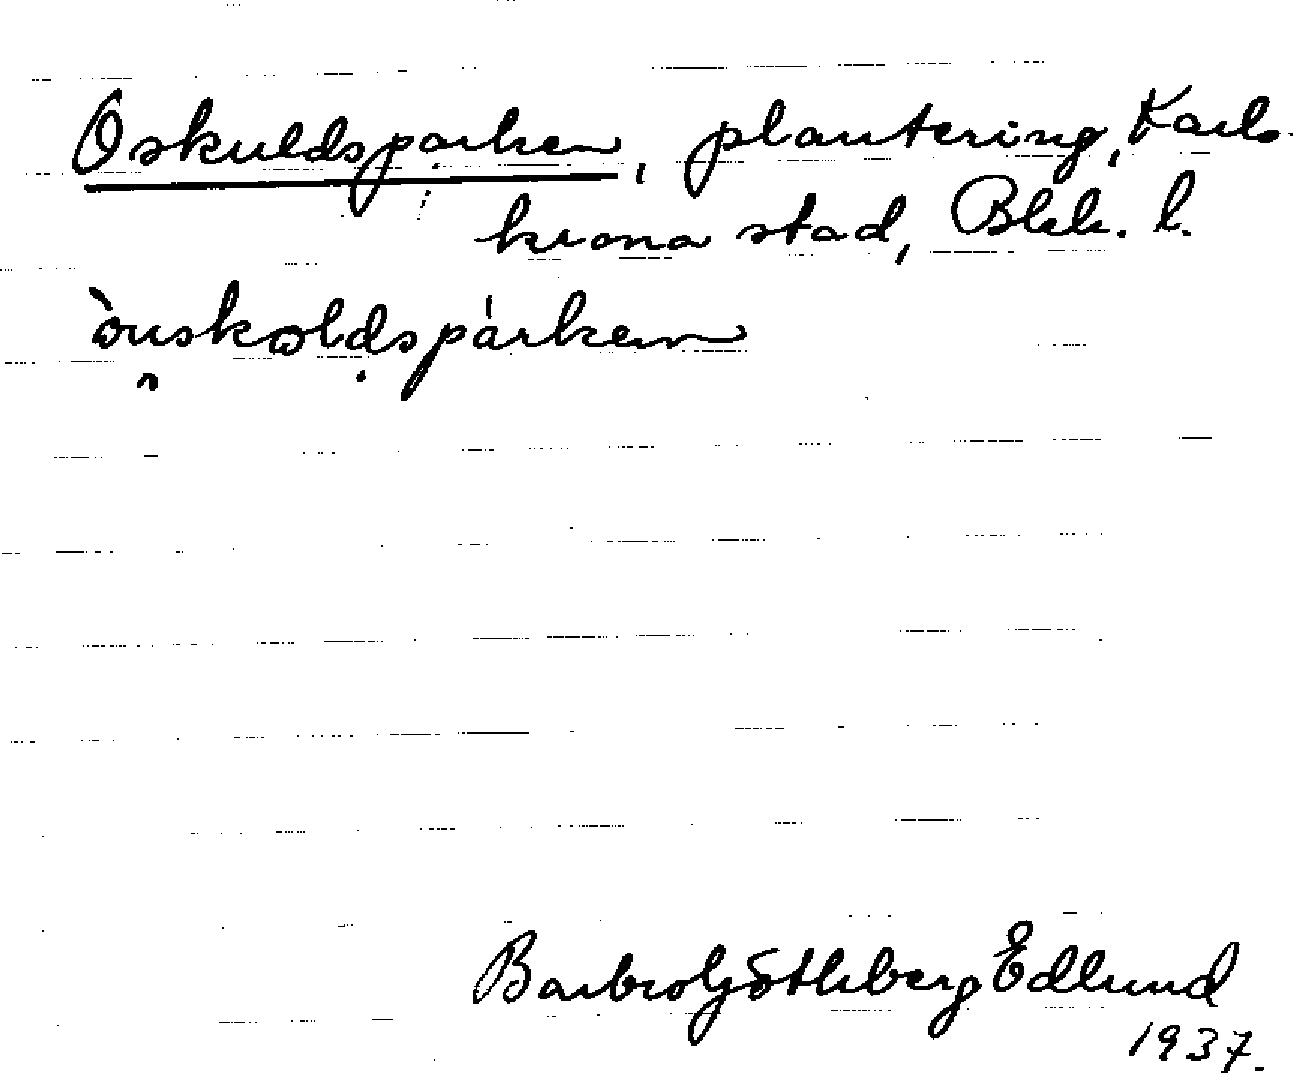 Oskuldsparken, plantering, Karls-
krona stad, Blek. l.
òuskωldspárken
Barbro Götlberg Edlund
1937.